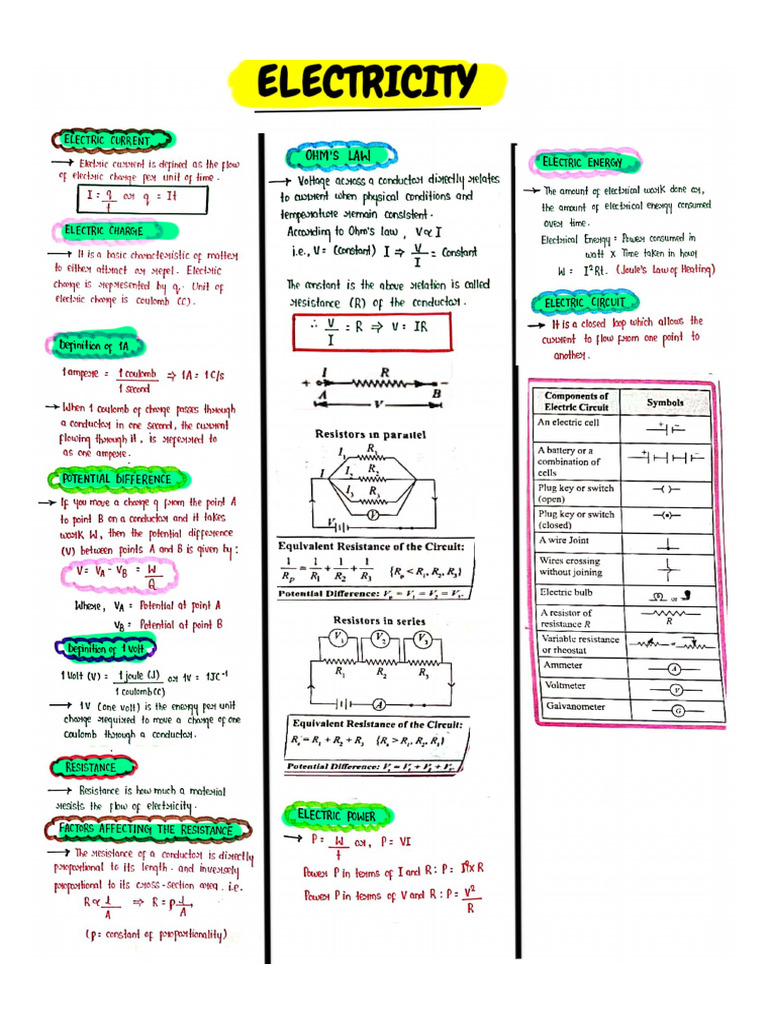 ELECTRICITY
ELECTRIC CURRENT
→ Electric current is defined as the flow
of electric charge per unit of time.
I = q/t or q = It
ELECTRIC CHARGE
→ It is a basic characteristic of matter
to either attract or repel. Electric
charge is represented by q. Unit of
electric charge is coulomb (C).
Definition of 1A
1 ampere = 1 coulomb/1 second ⇒ 1A = 1 C/s
→ When 1 coulomb of charge passes through
a conductor in one second, the current
flowing through it, is referred to
as one ampere.
POTENTIAL DIFFERENCE
→ If you move a charge q from the point A
to point B on a conductor and it takes
work W, then the potential difference
(V) between points A and B is given by:
V = VA - VB = W/Q
Where, VA = Potential at point A
VB = Potential at point B
Definition of 1 Volt
1 Volt (V) = 1 joule (J)/1 coulomb (C) or 1V = 1JC⁻¹
→ 1V (one volt) is the energy per unit
charge required to move a charge of one
coulomb through a conductor.
RESISTANCE
→ Resistance is how much a material
resists the flow of electricity.
FACTORS AFFECTING THE RESISTANCE
→ The resistance of a conductor is directly
proportional to its length and inversely
proportional to its cross-section area, i.e.
R ∝ l/A ⇒ R = ρ l/A,
(ρ = constant of proportionality)
OHM'S LAW
→ Voltage across a conductor directly relates
to current when physical conditions and
temperature remain consistent.
According to Ohm's law, V ∝ I
i.e., V = (Constant) I ⇒ V/I = Constant
The constant is the above relation is called
resistance (R) of the conductor.
∴ V/I = R ⇒ V = IR
+ I R -
A V B
Resistors in parallel
I I₁ R₁
I₂ R₂
I₃ R₃
V
V
Equivalent Resistance of the Circuit:
1/Rp = 1/R₁ + 1/R₂ + 1/R₃ {Rp < R₁, R₂, R₃}
Potential Difference: Vp = V₁ = V₂ = V₃.
Resistors in series
V₁ V₂ V₃
R₁ R₂ R₃
A
Equivalent Resistance of the Circuit:
Rs = R₁ + R₂ + R₃ {Rs > R₁, R₂, R₃}
Potential Difference: Vs = V₁ + V₂ + V₃.
ELECTRIC POWER
→ P = W/t or, P = VI
Power P in terms of I and R : P = I² × R
Power P in terms of V and R : P = V²/R
ELECTRIC ENERGY
→ The amount of electrical work done or,
the amount of electrical energy consumed
over time.
Electrical Energy = Power consumed in
watt × Time taken in hour
W = I²Rt. (Joule's Law of Heating)
ELECTRIC CIRCUIT
→ It is a closed loop which allows the
current to flow from one point to
another.
Components of Electric Circuit Symbols
An electric cell + -
A battery or a
combination of
cells + -
Plug key or switch
(open)
Plug key or switch
(closed)
A wire Joint
Wires crossing
without joining
Electric bulb or
A resistor of
resistance R R
Variable resistance
or rheostat or
Ammeter A
Voltmeter V
Galvanometer G